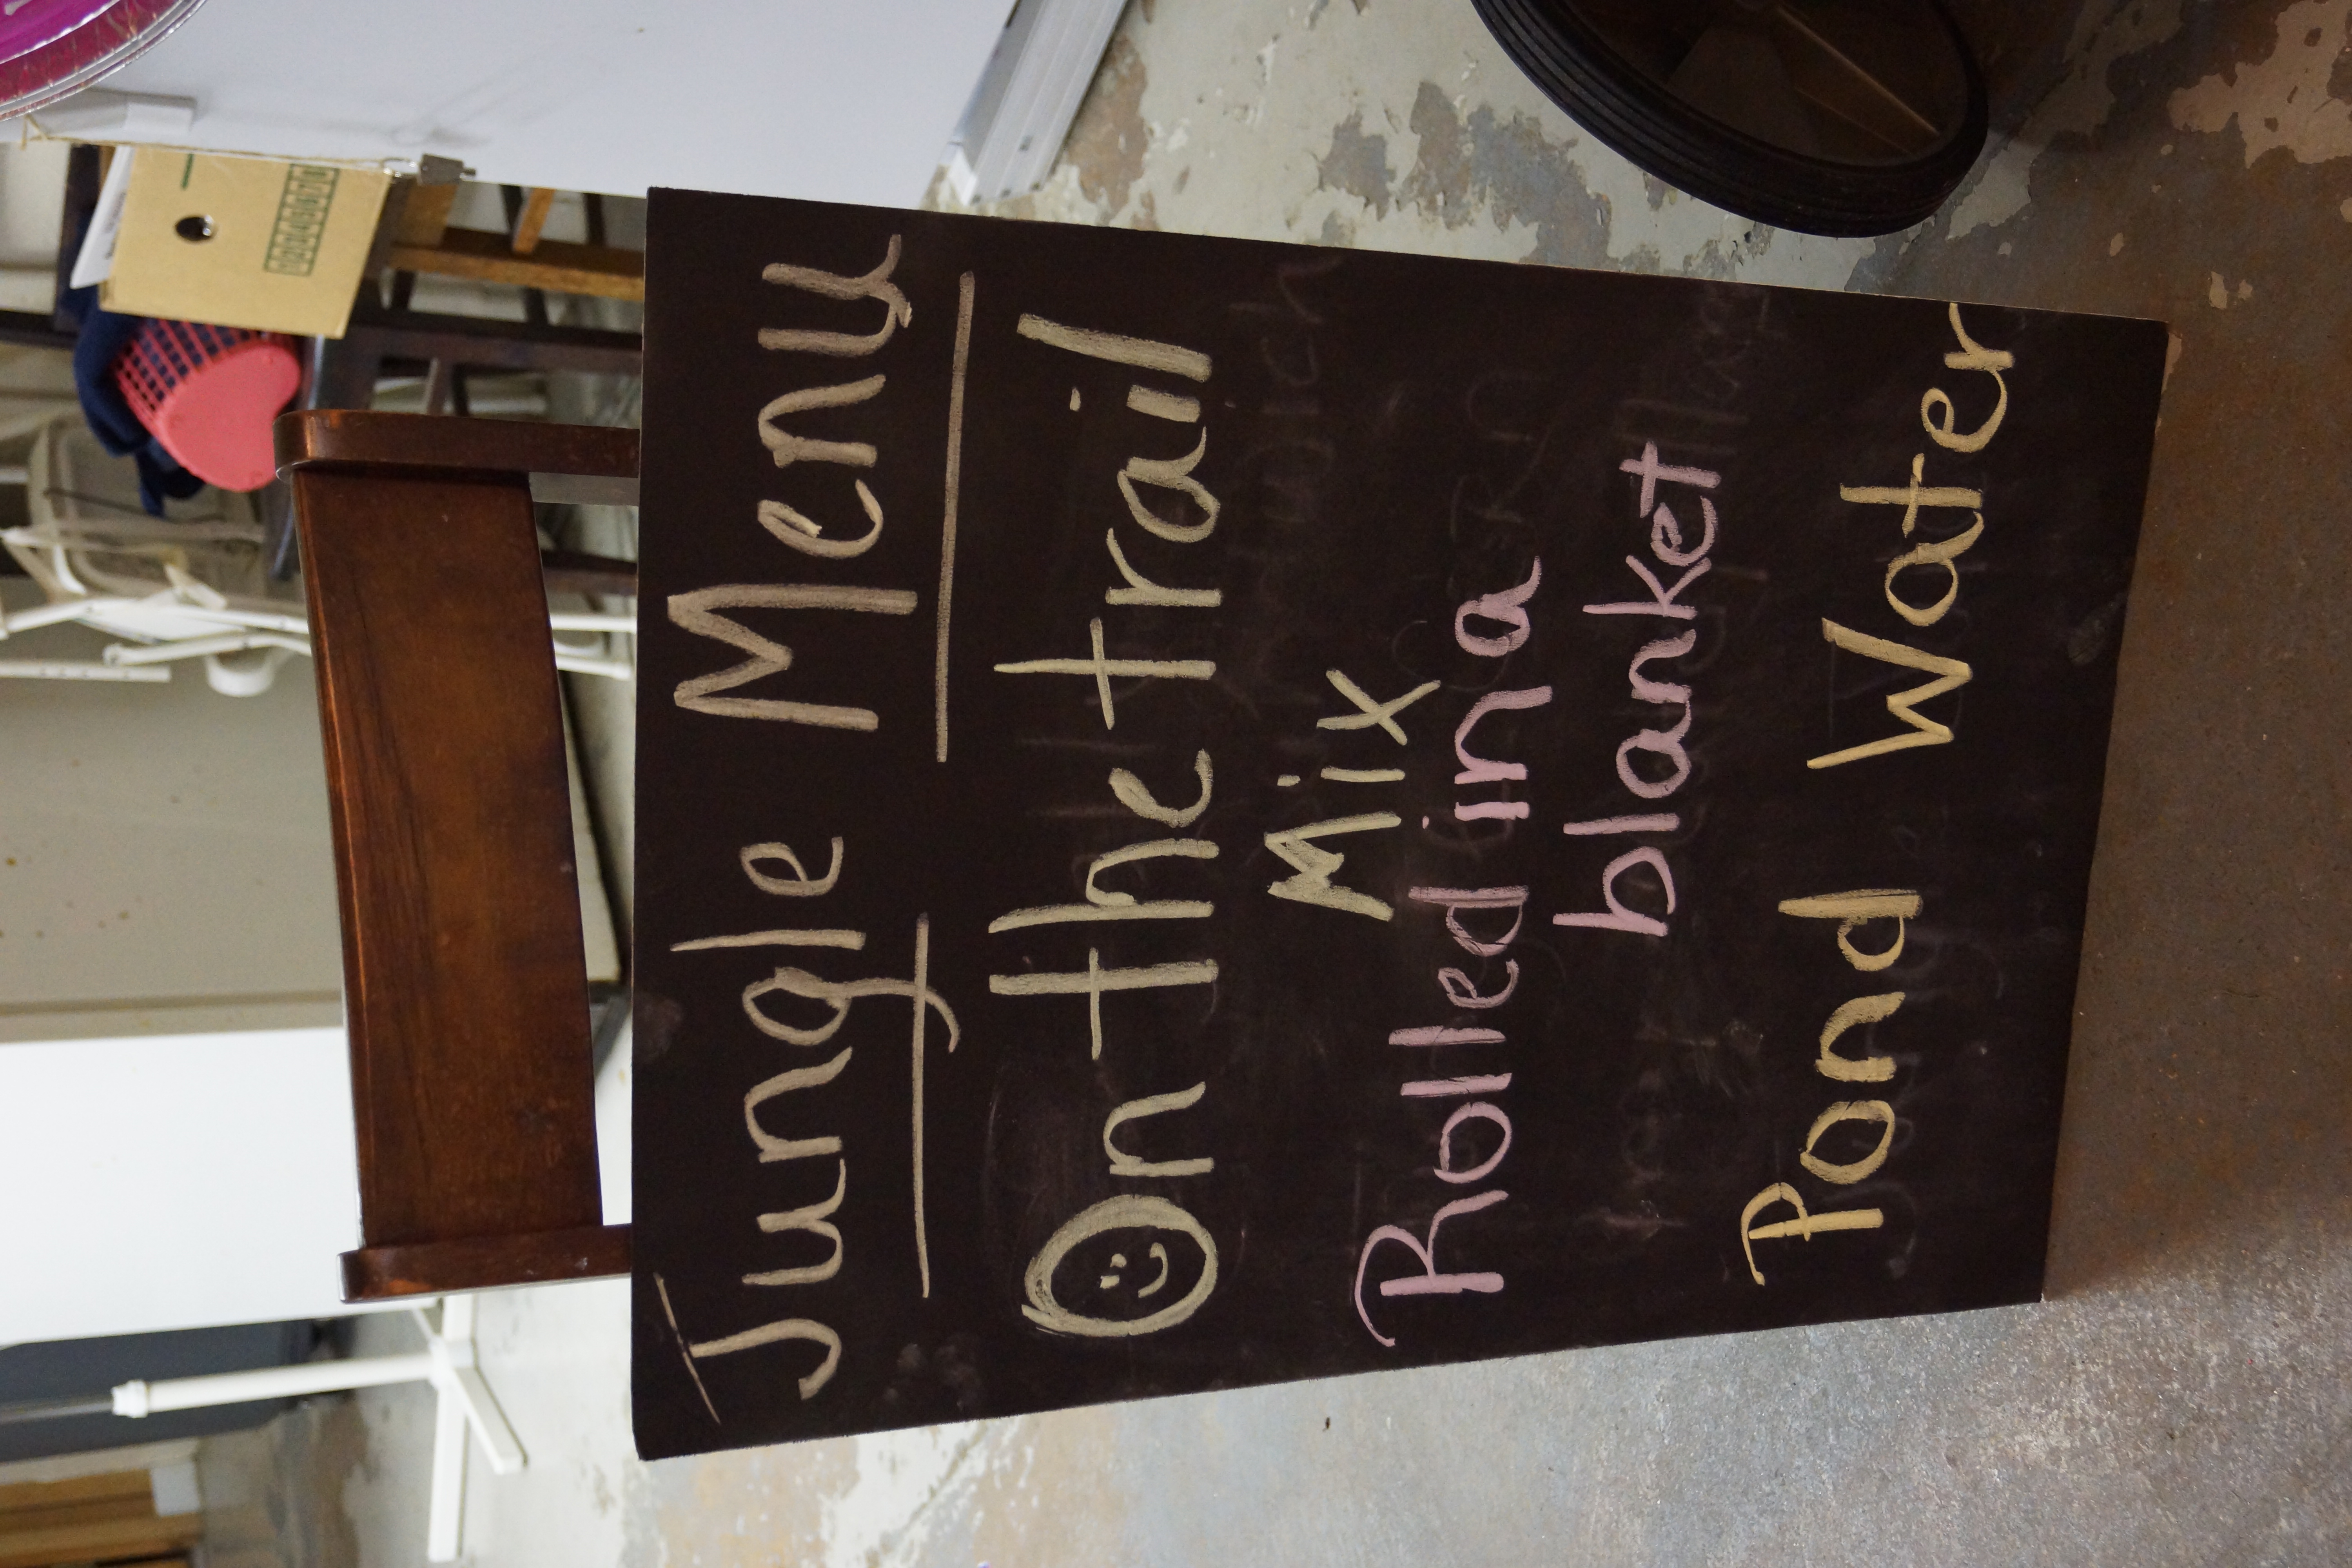 Jungle Menu
On the trail
Mix
Rolled in a
blanket
Pond Water